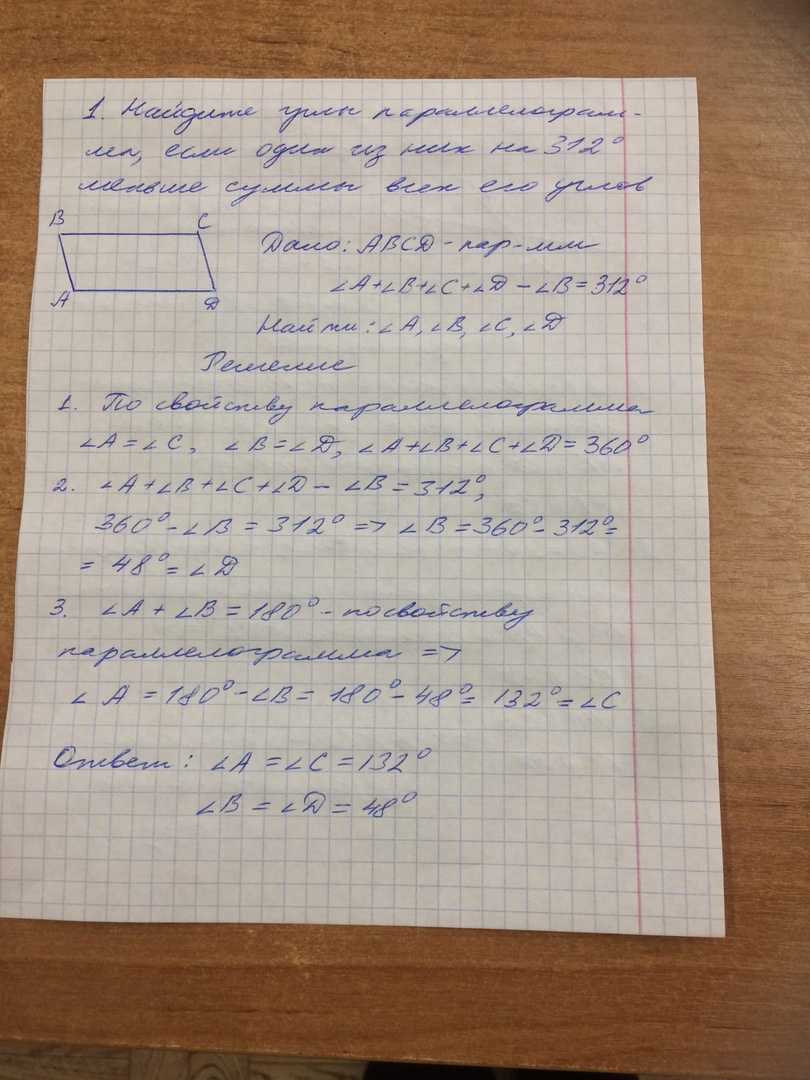 1. Найдите углы параллелограм-
ма, если один из них на 312°
меньше суммы всех его углов
B C
A D
Дано: ABCD - пар-мм
∠A+∠B+∠C+∠D - ∠B = 312°
Найти: ∠A, ∠B, ∠C, ∠D
Решение
1. По свойству параллелограмма
∠A = ∠C, ∠B = ∠D, ∠A+∠B+∠C+∠D = 360°
2. ∠A+∠B+∠C+∠D - ∠B = 312°,
360° - ∠B = 312° => ∠B = 360° - 312° =
= 48° = ∠D
3. ∠A + ∠B = 180° - по свойству
параллелограмма =>
∠A = 180° - ∠B = 180° - 48° = 132° = ∠C
Ответ: ∠A = ∠C = 132°
∠B = ∠D = 48°